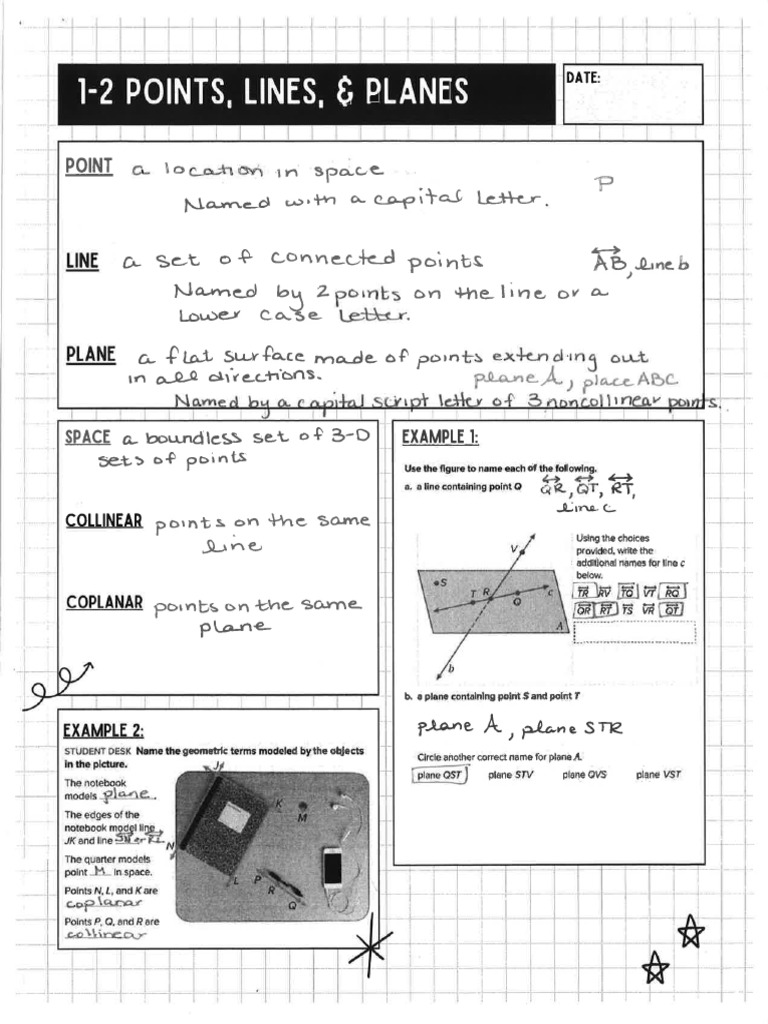 1-2 POINTS, LINES, & PLANES
DATE:
POINT a location in space
P
Named with a capital letter.
LINE a set of connected points
AB, line b
Named by 2 points on the line or a
lower case letter.
PLANE a flat surface made of points extending out
in all directions.
plane A, place ABC
Named by a capital script letter of 3 noncollinear points.
SPACE a boundless set of 3-D
sets of points
COLLINEAR points on the same
line
COPLANAR points on the same
plane
EXAMPLE 1:
Use the figure to name each of the following.
a. a line containing point Q QR, QT, RT,
line c
Using the choices
provided, write the
additional names for line c
below.
TR RV TQ VT RQ
QR RT TS VR QT
V
S
T R Q c
A
b
b. a plane containing point S and point T
plane A, plane STR
Circle another correct name for plane A.
plane QST plane STV plane QVS plane VST
EXAMPLE 2:
STUDENT DESK Name the geometric terms modeled by the objects
in the picture.
The notebook
models plane.
The edges of the
notebook model line
JK and line
The quarter models
point M in space.
Points N, L, and K are
coplanar
Points P, Q, and R are
collinear
J
K
M
N
L
P
R
Q